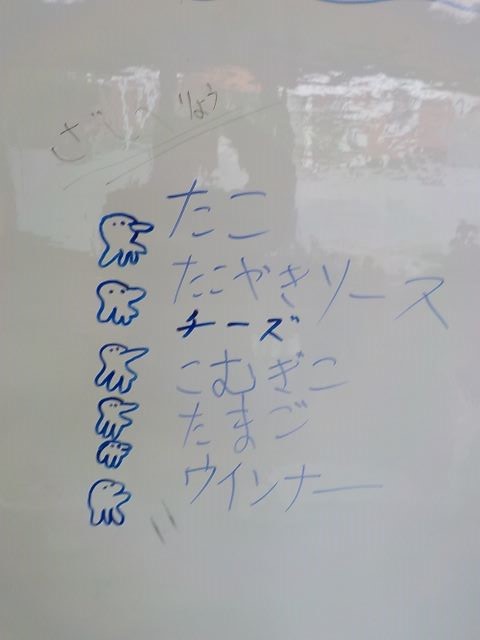 ざいりょう
たこ
たこやきソース
チーズ
こむぎこ
たまご
ウインナー